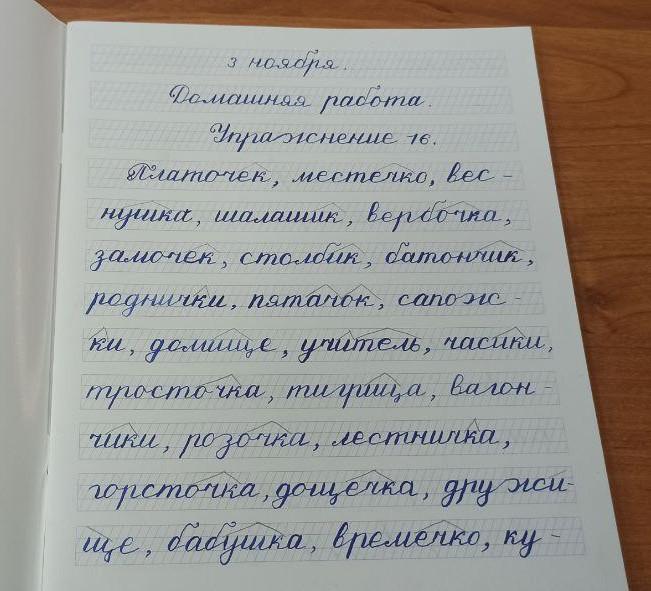 3 ноября.
Домашняя работа.
Упражнение 16.
Платочек, местечко, вес-
нушка, шалашик, вербочка,
замочек, столбик, батончик,
роднички, пятачок, сапож-
ки, домище, учитель, часики,
тросточка, тигрица, вагон-
чики, розочка, лестничка,
горсточка, дощечка, дружи-
ще, бабушка, времечко, ку-